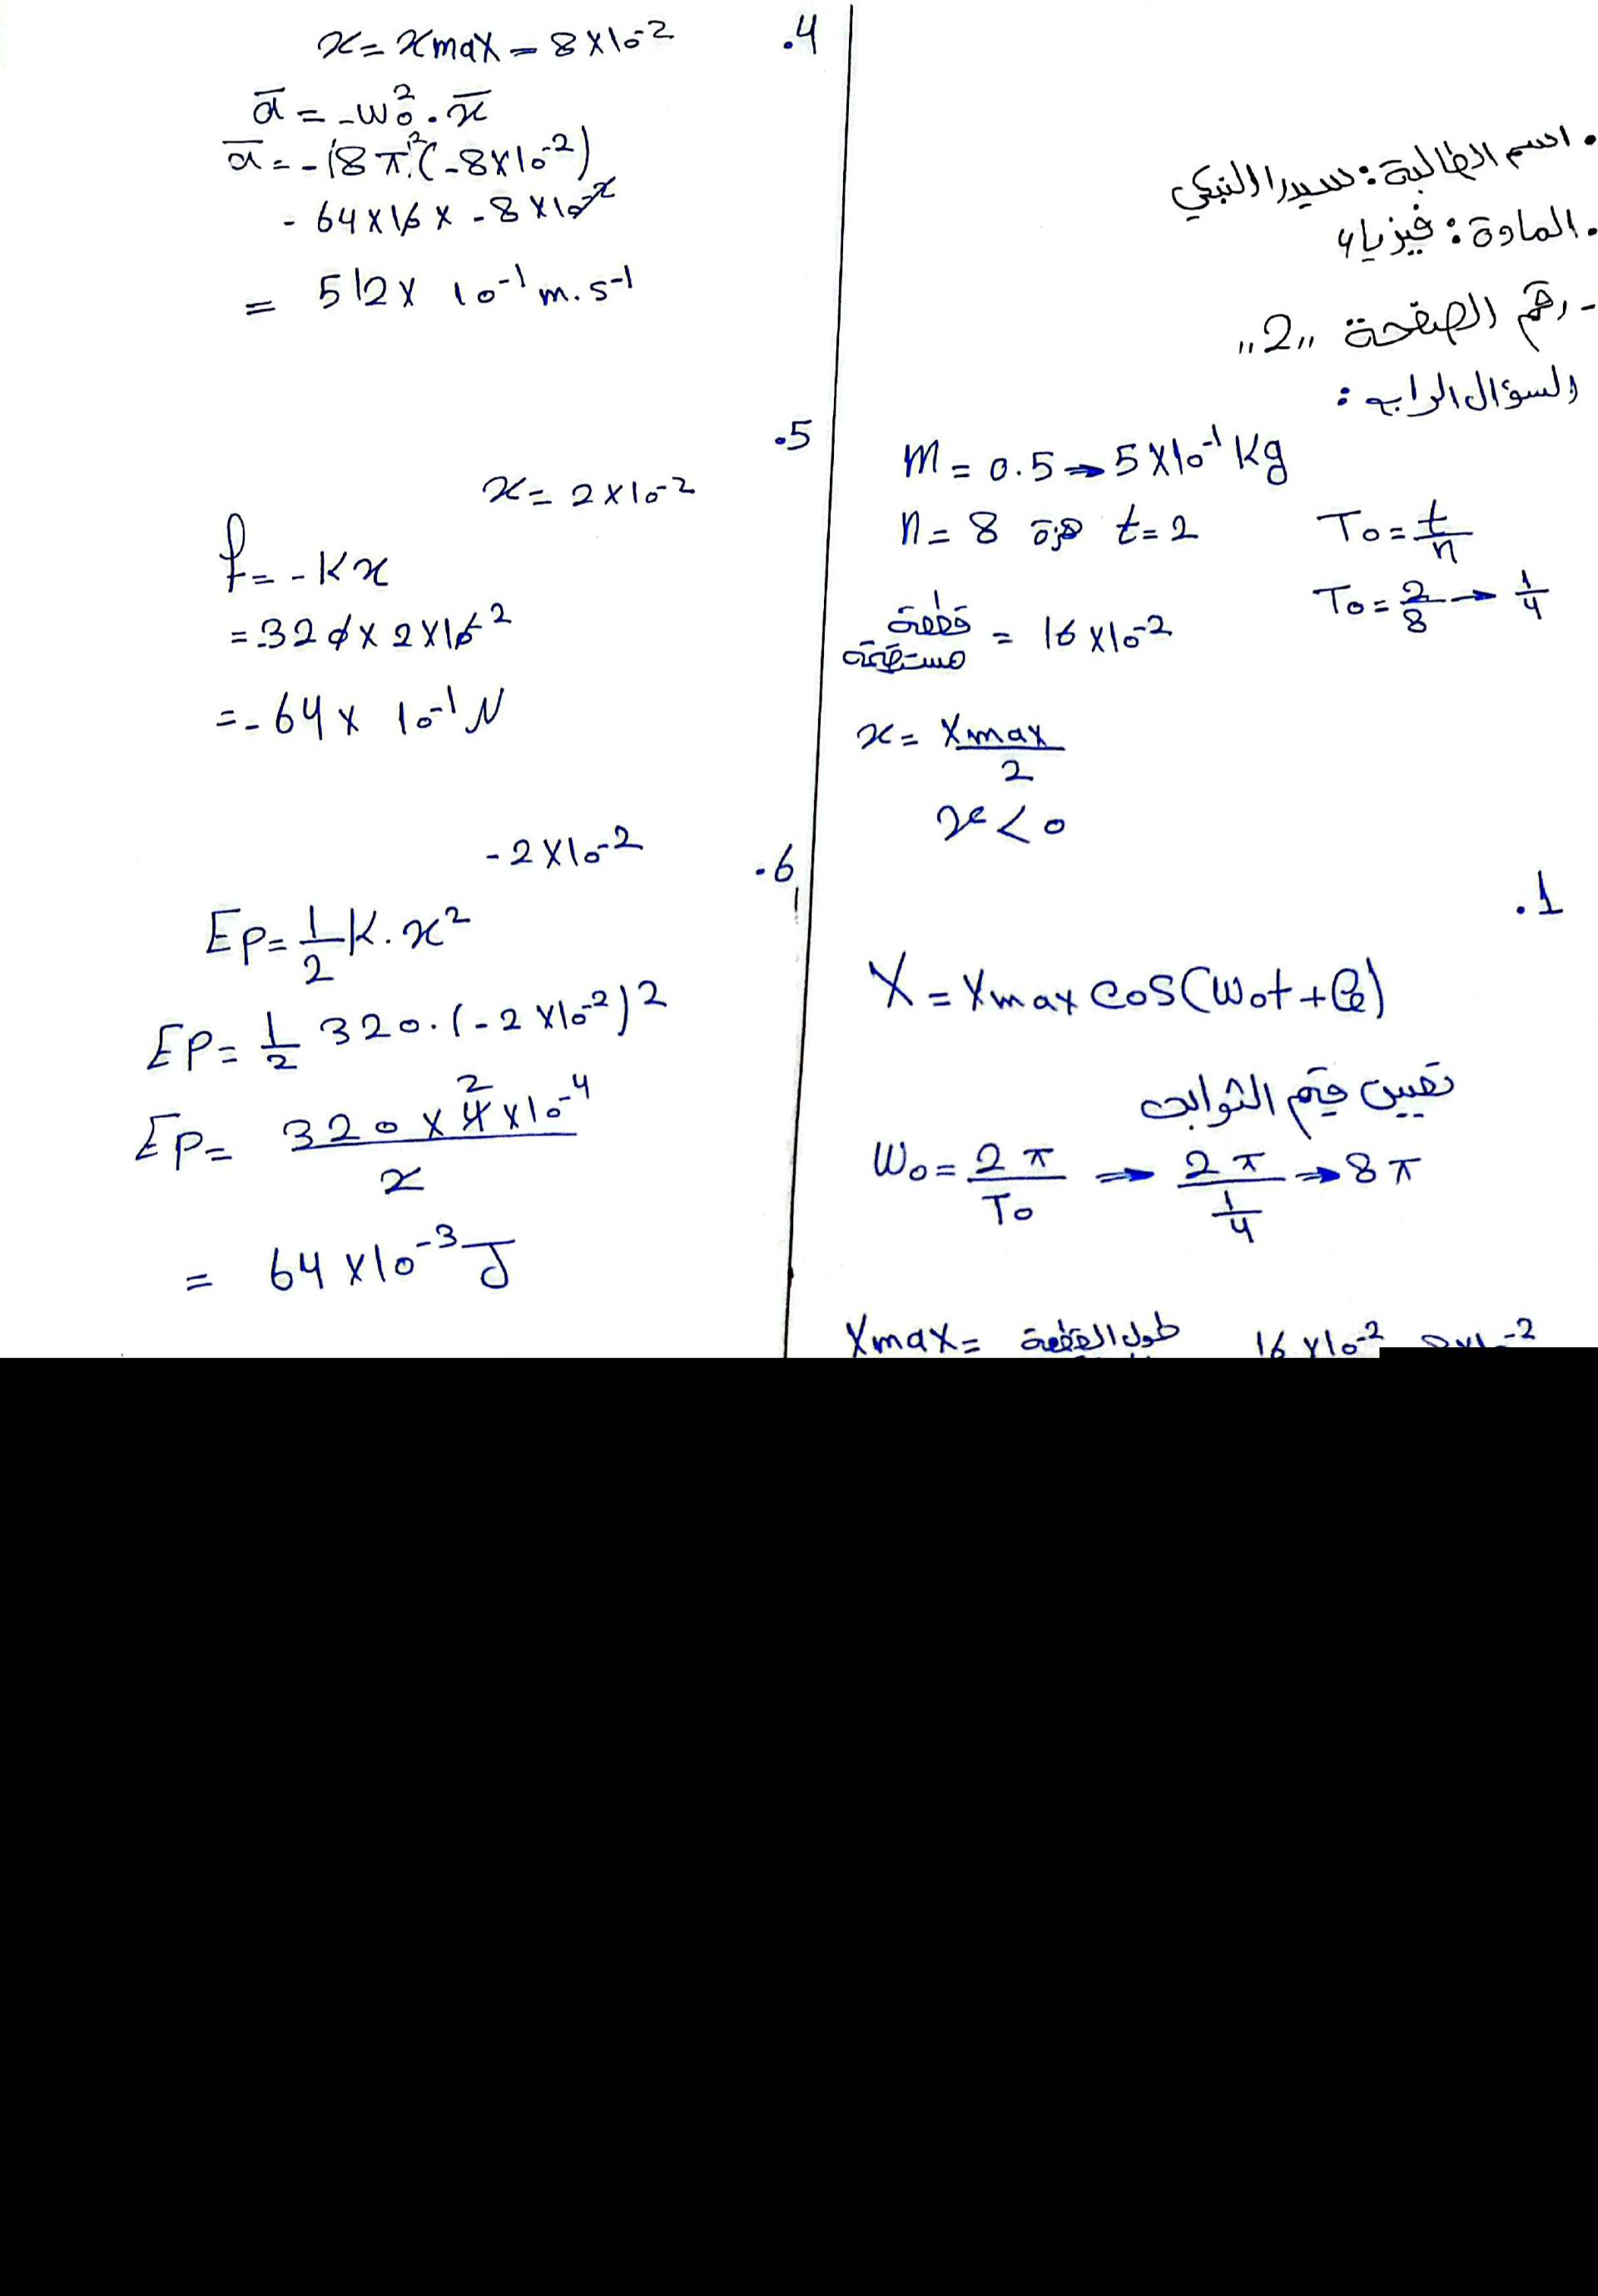 • اسم الطالبة: سيدرا النبكي
• المادة: فيزياء
- رقم الصفحة "2"
السؤال الرابع:
m = 0.5 → 5×10⁻¹ Kg
n = 8 هزة t = 2 T₀ = t/n
قطعة مستقيمة = 16×10⁻² T₀ = 2/8 → 1/4
x = Xmax/2
x < 0
.1
X = Xmax cos(ω₀t + φ)
نعيين قيم الثوابت
ω₀ = 2π/T₀ → 2π/(1/4) → 8π
Xmax = طول القطعة 16×10⁻²
.4
x = xmax - 8×10⁻²
a̅ = -ω₀² . x̅
a̅ = -(8π)²(-8×10⁻²)
- 64×10 × -8×10⁻²
= 512× 10⁻¹ m.s⁻¹
.5
x = 2×10⁻²
f = -Kx
= -320 × 2×10⁻²
= - 64 × 10⁻¹ N
.6
-2×10⁻²
Ep = 1/2 K.x²
Ep = 1/2 320.(-2×10⁻²)²
Ep = 320 × 4×10⁻⁴ / 2
= 64×10⁻³ J